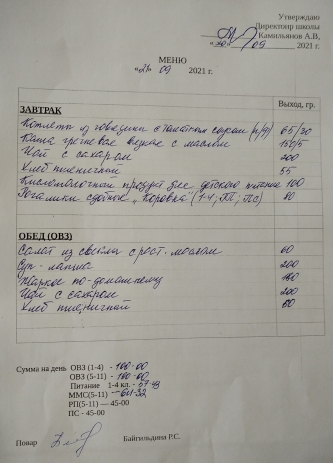 Утверждаю
Директор школы
Камильянов А.В.
09 2021 г.
МЕНЮ
«21» 09 2021 г.
Выход, гр.
ЗАВТРАК
Котлеты из говядины с томатным соусом (п/ф) 65/30
Каша гречневая вязкая с маслом 150/5
Чай с сахаром 200
Хлеб пшеничный 55
Кисломолочный продукт для детского питания 100
Рогалики сдобные „Коровка" (1-4; ПП; ПС) 80
ОБЕД (ОВЗ)
Салат из свеклы с раст. маслом 60
Суп-лапша 200
Жаркое по-домашнему 180
Чай с сахаром 200
Хлеб пшеничный 60
Сумма на день ОВЗ (1-4) - 100-00
ОВЗ (5-11) - 100-00
Питание 1-4 кл. -
ММС(5-11) -
РП(5-11) — 45-00
ПС - 45-00
Повар Байгильдина Р.С.